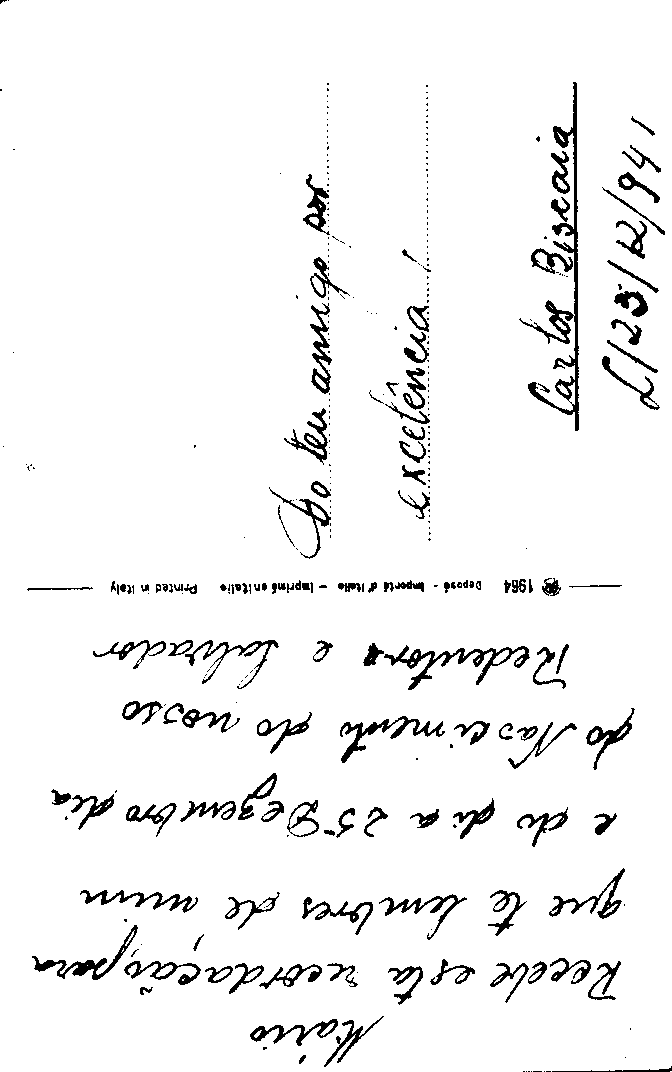 Mário
Recebe esta recordação, para
que te lembres de mim
e do dia 25 Dezembro dia
do Nascimento do nosso
Redentor e Salvador
1964 Deposé - Importé d'Italie - Imprimé en Italie Printed in Italy
Do teu amigo por
excelência!
Carlos Biscaia
L/23/12/941